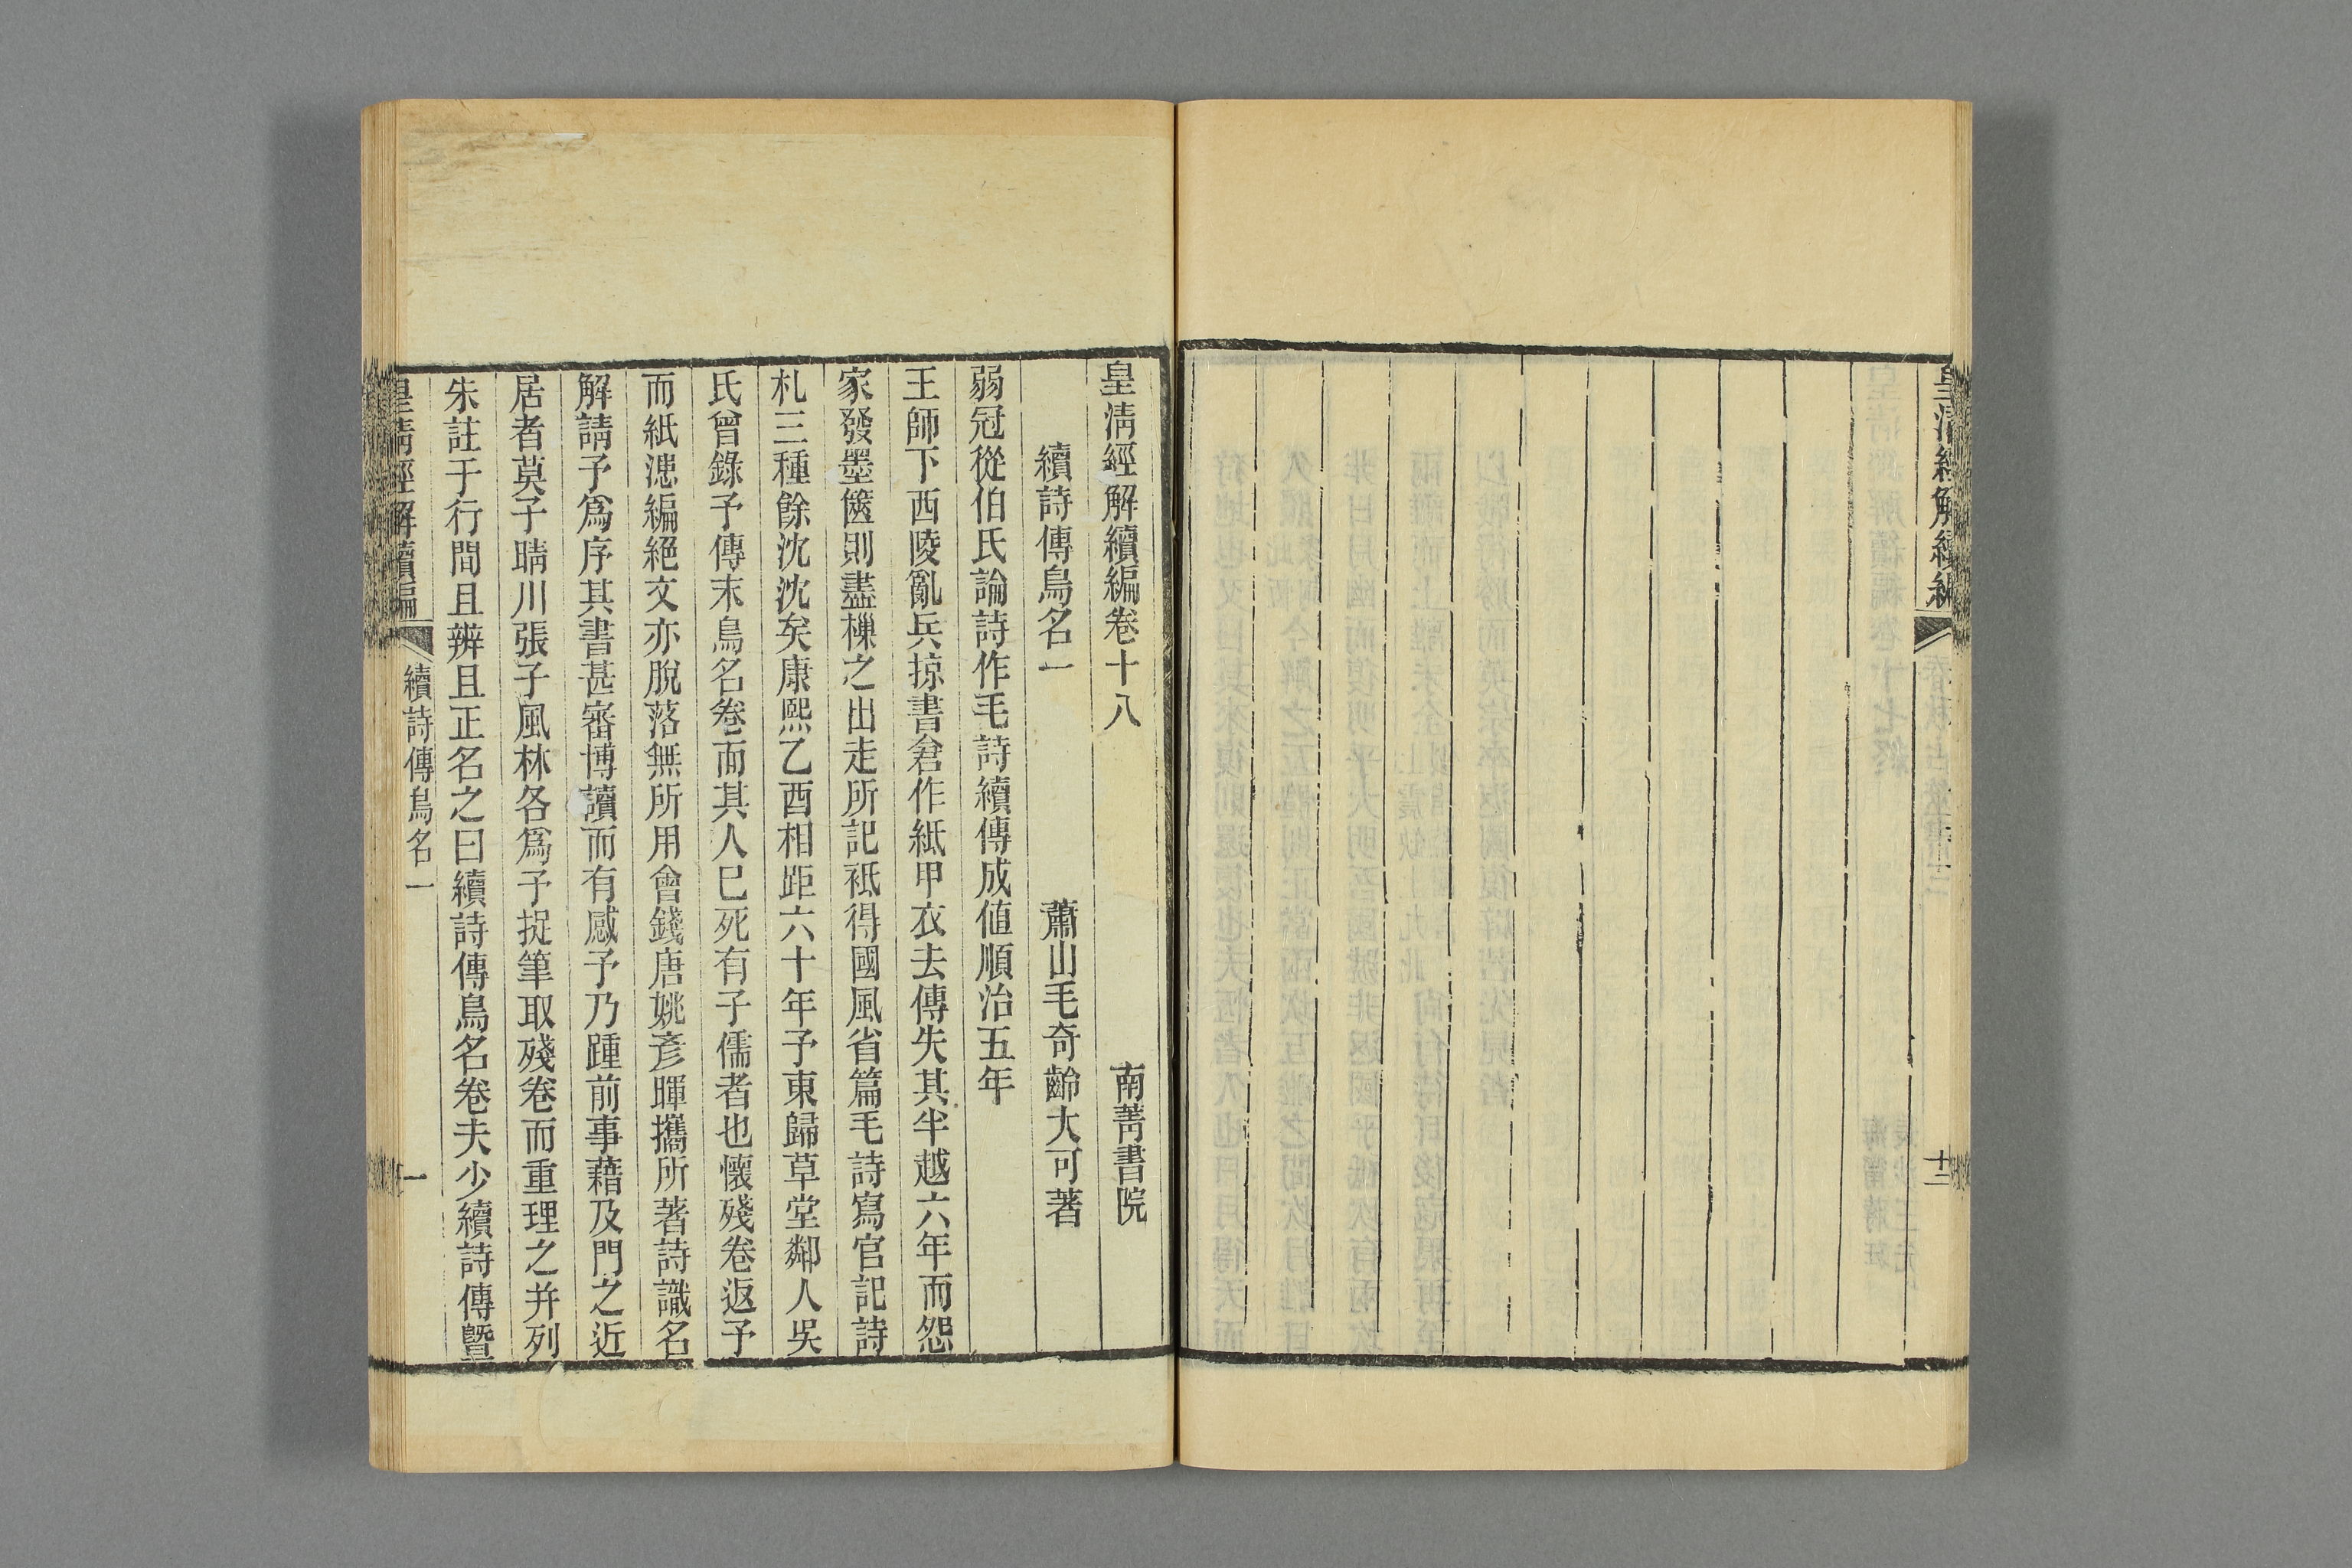 皇清經解續編
十二
皇清經解續編卷十八
南菁書院
續詩傳鳥名一
蕭山毛奇齡大可著
弱冠從伯氏論詩作毛詩續傳成値順治五年
王師下西陵亂兵掠書倉作紙甲衣去傳失其半越六年而怨
家發墨篋則盡樔之出走所記祗得國風省篇毛詩寫官記詩
札三種餘沈沈矣康熙乙酉相距六十年予東歸草堂鄰人吳
氏曾錄予傳末鳥名卷而其人已死有子儒者也懷殘卷返予
而紙漶編絕文亦脫落無所用會錢唐姚彥暉攜所著詩識名
解請予爲序其書甚審博讀而有感予乃踵前事藉及門之近
居者莫子晴川張子風林各爲予捉筆取殘卷而重理之并列
朱註于行間且辨且正名之曰續詩傳鳥名卷夫少續詩傳曁
皇清經解續編
續詩傳鳥名一
一